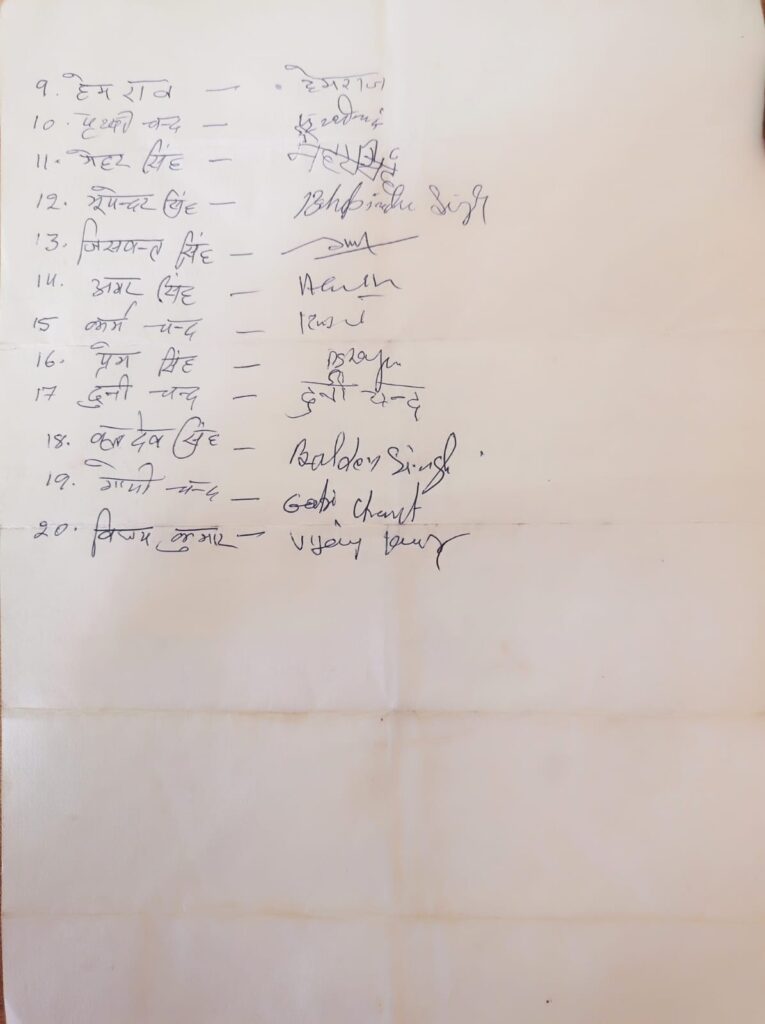 9. हेम राज — हेमराज
10. पृथ्वी चन्द —
11. मेहर सिंह — मेहर सिंह
12. भूपेन्दर सिंह — Bhupinder Singh
13. जिसवन्त सिंह —
14. अमर सिंह —
15 कर्म चन्द —
16. प्रेम सिंह —
17 दुनी चन्द — दुनी चन्द
18. बलदेव सिंह — Baldev Singh
19. गोपी चन्द — Gopi Chand
20. विजय कुमार — Vijay Kumar